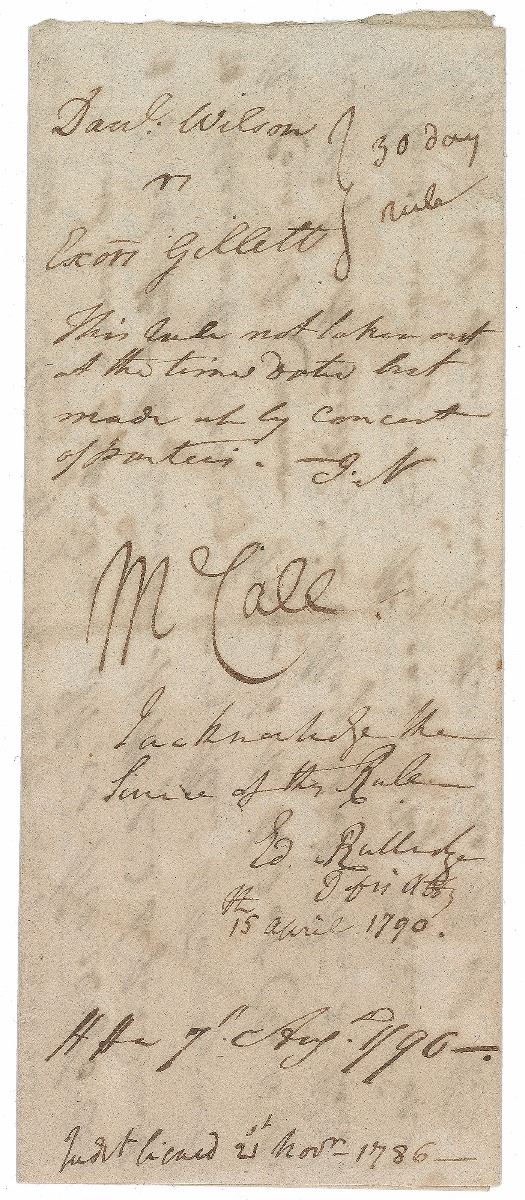 Danl. Wilson
vs
Exors Gillett
30 day
rule
This Rule not taken out
at the time dated but
made up by consent
of parties. — J. N
McCall
I acknowledge the
Service of this Rule
Ed. Rutledge
Defts Atty
15th April 1790.
7th Augt. 1790 —.
Judt signed 21st Novr — 1786 —